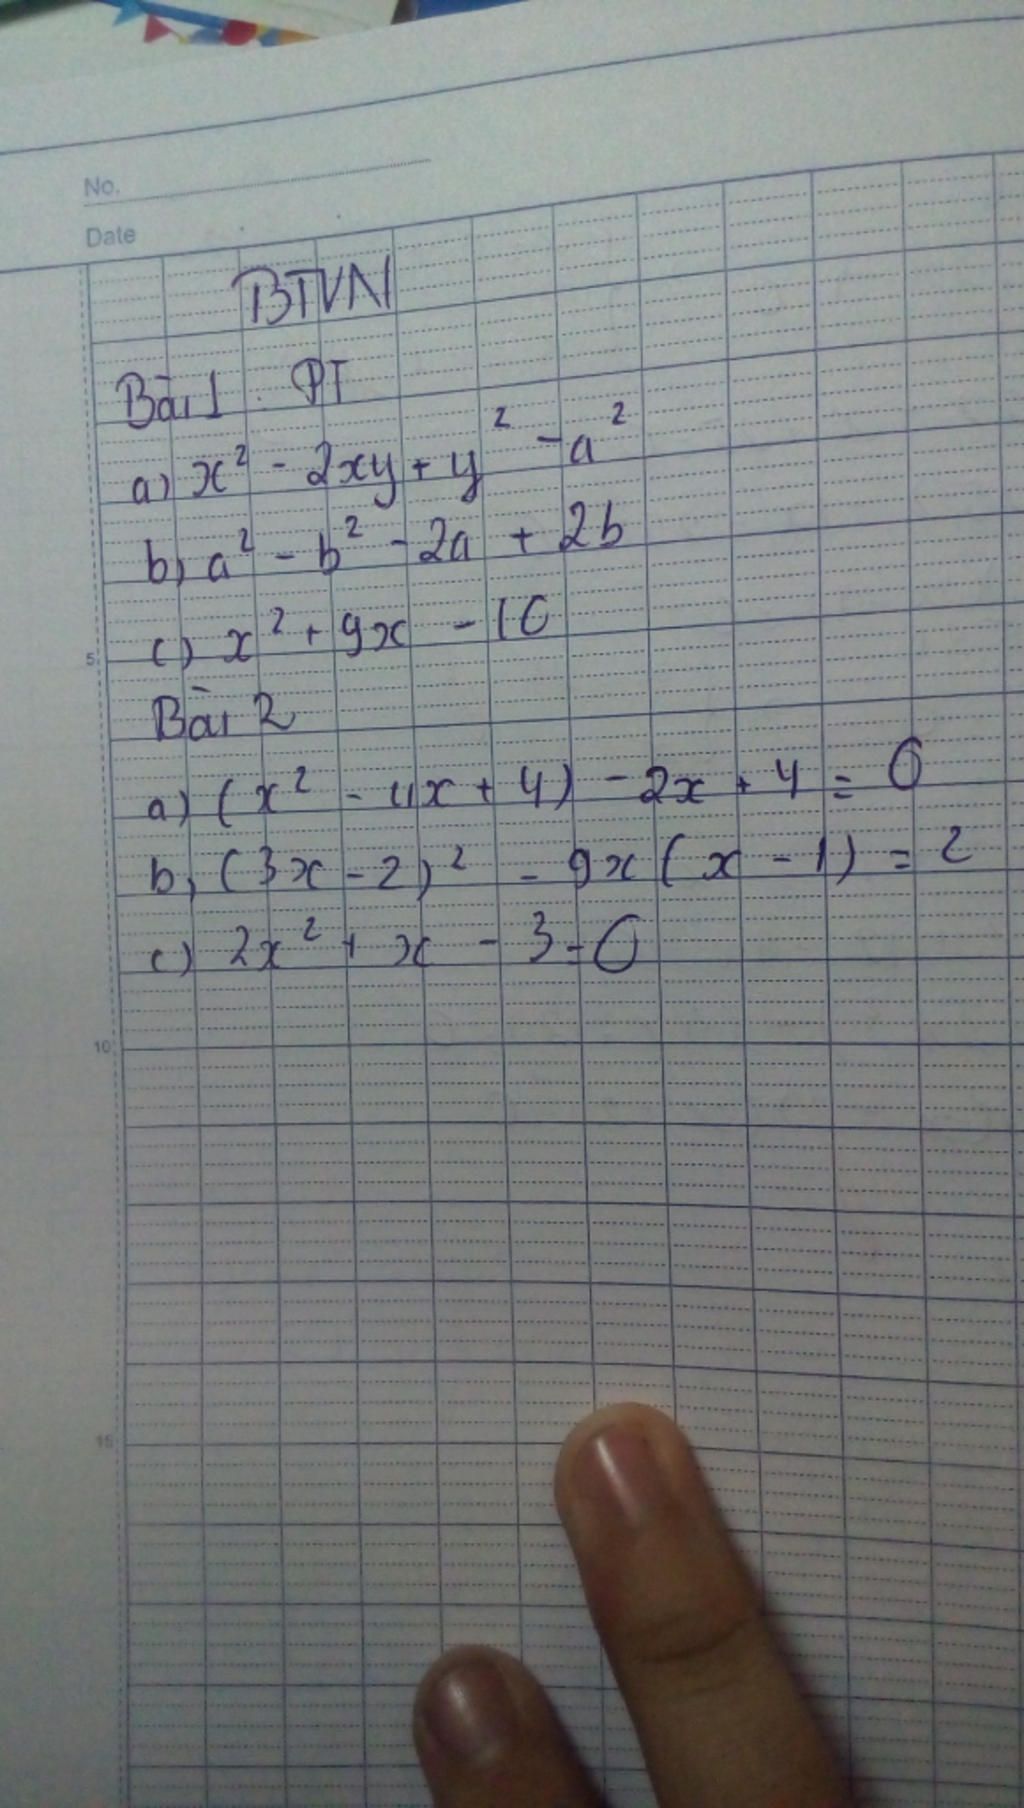 No.
Date
BTVN
Bài 1 : PT
a) x² - 2xy + y² - a²
b) a² - b² - 2a + 2b
c) x² + 9x - 10
5
Bài 2
a) (x² - 4x + 4) - 2x + 4 = 0
b) (3x - 2)² - 9x(x - 1) = 2
c) 2x² + x - 3 = 0
10
15